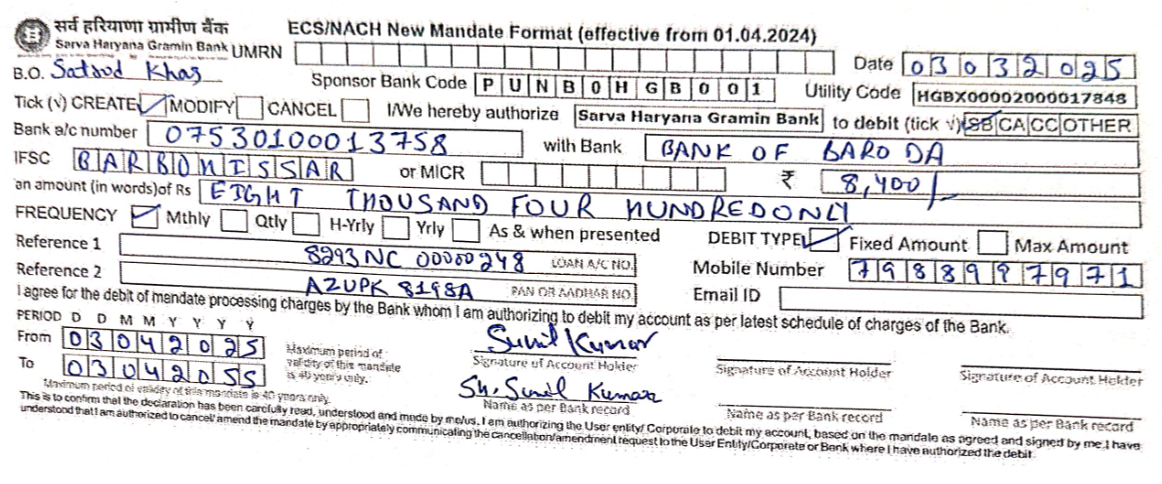 सर्व हरियाणा ग्रामीण बैंक
Sarva Haryana Gramin Bank
ECS/NACH New Mandate Format (effective from 01.04.2024)
UMRN Date 03032025
B.O. Satrod Khas Sponsor Bank Code PUNB0HGB001 Utility Code HGBX00002000017848
Tick (√) CREATE ✓ MODIFY CANCEL I/We hereby authorize Sarva Haryana Gramin Bank to debit (tick √) SB CA CC OTHER
Bank a/c number 07530100013758 with Bank BANK OF BARODA
IFSC BARB0HISSAR or MICR ₹ 8,400/-
an amount (in words)of Rs EIGHT THOUSAND FOUR HUNDRED ONLY
FREQUENCY ✓ Mthly Qtly H-Yrly Yrly As & when presented DEBIT TYPE ✓ Fixed Amount Max Amount
Reference 1 8293NC00000248 LOAN A/C NO. Mobile Number 7988997971
Reference 2 AZUPK8198A PAN OR AADHAR NO Email ID
I agree for the debit of mandate processing charges by the Bank whom I am authorizing to debit my account as per latest schedule of charges of the Bank.
PERIOD D D M M Y Y Y Y
From 03042025 Maximum period of validity of this mandate is 40 years only.
To 03042055
Maximum period of validity of this mandate is 40 years only.
Sunil Kumar
Signature of Account Holder Signature of Account Holder Signature of Account Holder
Sh. Sunil Kumar
Name as per Bank record Name as per Bank record Name as per Bank record
This is to confirm that the declaration has been carefully read, understood and made by me/us. I am authorizing the User entity/ Corporate to debit my account, based on the mandate as agreed and signed by me. I have
understood that I am authorized to cancel/ amend the mandate by appropriately communicating the cancellation/amendment request to the User Entity/Corporate or Bank where I have authorized the debit.